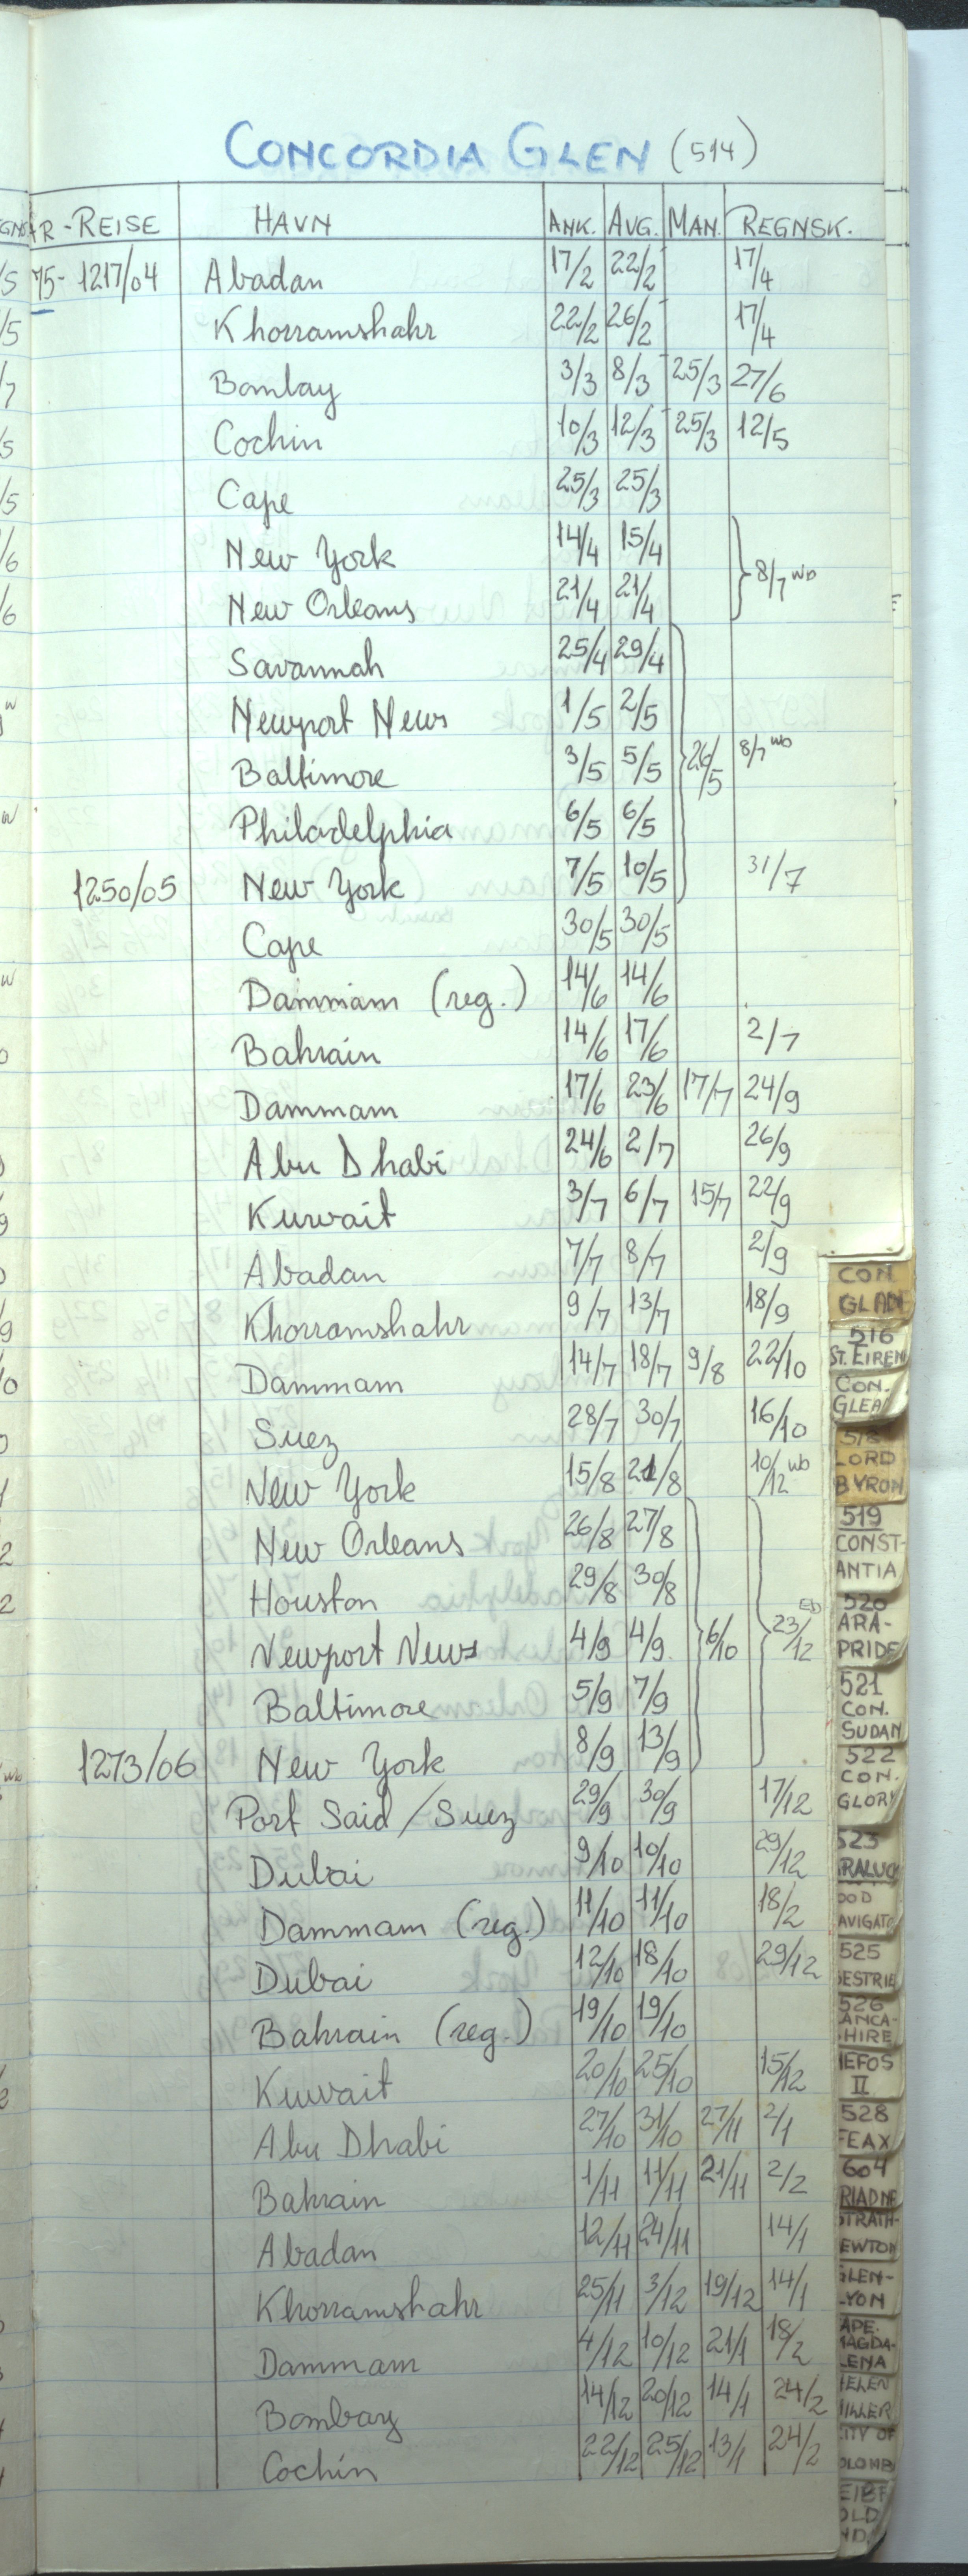 CONCORDIA GLEN (514)
ÅR - REISE HAVN ANK. AVG. MAN. REGNSK.
75- 1217/04 Abadan 17/2 22/2 17/4
Khorramshahr 22/2 26/2 17/4
Bombay 3/3 8/3 25/3 27/6
Cochin 10/3 12/3 25/3 12/5
Cape 25/3 25/3
New York 14/4 15/4
8/7 wb
New Orleans 21/4 21/4
Savannah 25/4 29/4
Newport News 1/5 2/5
Baltimore 3/5 5/5 26/5 8/7 wb
Philadelphia 6/5 6/5
1250/05 New York 7/5 10/5 31/7
Cape 30/5 30/5
Dammam (reg.) 14/6 14/6
Bahrain 14/6 17/6 2/7
Dammam 17/6 23/6 17/7 24/9
Abu Dhabi 24/6 2/7 26/9
Kuwait 3/7 6/7 15/7 22/9
Abadan 7/7 8/7 2/9
Khorramshahr 9/7 13/7 18/9
Dammam 14/7 18/7 9/8 22/10
Suez 28/7 30/7 16/10
New York 15/8 21/8 10/12 wb
New Orleans 26/8 27/8
Houston 29/8 30/8
Newport News 4/9 4/9 6/10 23/12 EB
Baltimore 5/9 7/9
1273/06 New York 8/9 13/9
Port Said/Suez 29/9 30/9 17/12
Dubai 9/10 10/10 29/12
Dammam (reg.) 11/10 11/10 18/2
Dubai 12/10 18/10 29/12
Bahrain (reg.) 19/10 19/10
Kuwait 20/10 25/10 15/12
Abu Dhabi 27/10 31/10 27/11 2/1
Bahrain 1/11 11/11 21/11 2/2
Abadan 12/11 24/11 14/1
Khorramshahr 25/11 3/12 19/12 14/1
Dammam 4/12 10/12 21/1 18/2
Bombay 14/12 20/12 14/1 24/2
Cochin 22/12 25/12 13/1 24/2
CON
GLADE
516
ST. EIREN
CON.
GLEA
518
LORD
BYRON
519
CONST-
ANTIA
520
ARA-
PRIDE
521
CON.
SUDAN
522
CON.
GLORY
523
RALUC
OOD
AVIGATO
525
ESTRIE
526
ANCA-
HIRE
IEFOS
II
528
FEAX
604
RIADNE
STRATH-
EWTON
GLEN-
LYON
APE.
MAGDA-
LENA
HELEN
MILLER
CITY OF
OLOMB
EIBF
OLD
ND.